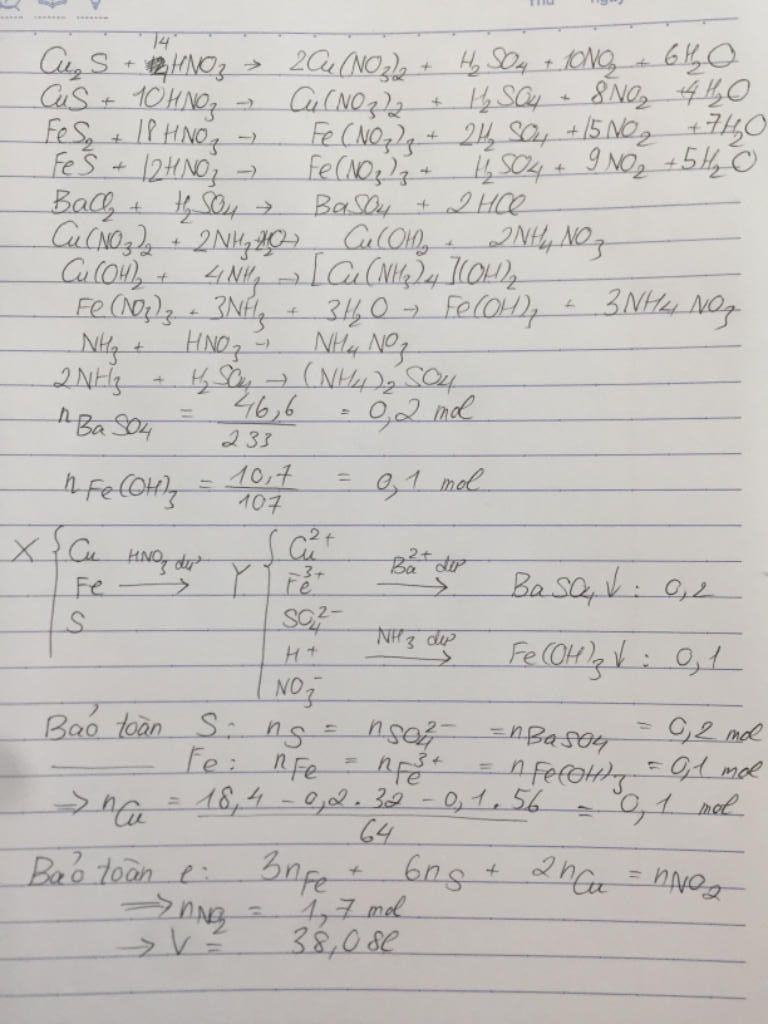 Thứ ngày
Cu₂S + 14HNO₃ → 2Cu(NO₃)₂ + H₂SO₄ + 10NO₂ + 6H₂O
CuS + 10HNO₃ → Cu(NO₃)₂ + H₂SO₄ + 8NO₂ + 4H₂O
FeS₂ + 18HNO₃ → Fe(NO₃)₃ + 2H₂SO₄ + 15NO₂ + 7H₂O
FeS + 12HNO₃ → Fe(NO₃)₃ + H₂SO₄ + 9NO₂ + 5H₂O
BaCl₂ + H₂SO₄ → BaSO₄ + 2HCl
Cu(NO₃)₂ + 2NH₃ + 2H₂O → Cu(OH)₂ + 2NH₄NO₃
Cu(OH)₂ + 4NH₃ → [Cu(NH₃)₄](OH)₂
Fe(NO₃)₃ + 3NH₃ + 3H₂O → Fe(OH)₃ + 3NH₄NO₃
NH₃ + HNO₃ → NH₄NO₃
2NH₃ + H₂SO₄ → (NH₄)₂SO₄
n BaSO₄ = 46,6 / 233 = 0,2 mol
n Fe(OH)₃ = 10,7 / 107 = 0,1 mol
X { Cu HNO₃ dư Y { Cu²⁺ Ba²⁺ dư
Fe → Fe³⁺ → BaSO₄↓ : 0,2
S SO₄²⁻ NH₃ dư
H⁺ → Fe(OH)₃↓ : 0,1
NO₃⁻
Bảo toàn S: nS = nSO₄²⁻ = nBaSO₄ = 0,2 mol
——— Fe: nFe = nFe³⁺ = nFe(OH)₃ = 0,1 mol
⇒ nCu = 18,4 - 0,2.32 - 0,1.56 / 64 = 0,1 mol
Bảo toàn e: 3nFe + 6nS + 2nCu = nNO₂
⇒ nNO₂ = 1,7 mol
→ V = 38,08l